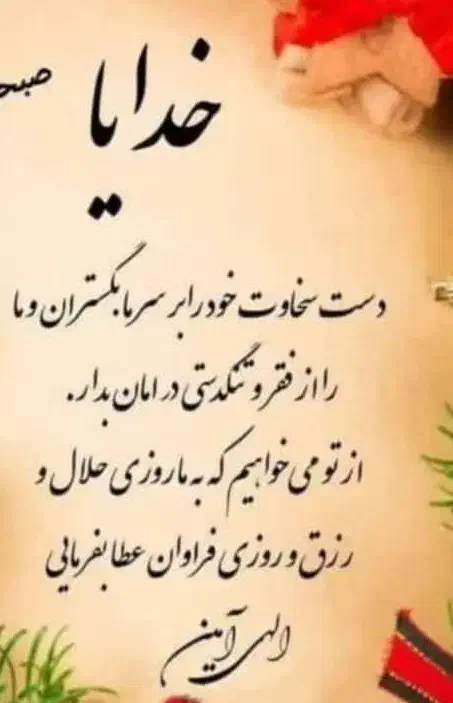 خدایا
دست سخاوت خود را بر سر ما بگستران و ما
را از فقر و تنگدستی در امان بدار.
از تو می خواهیم که به ما روزی حلال و
رزق و روزی فراوان عطا بفرمایی
الهی آمین